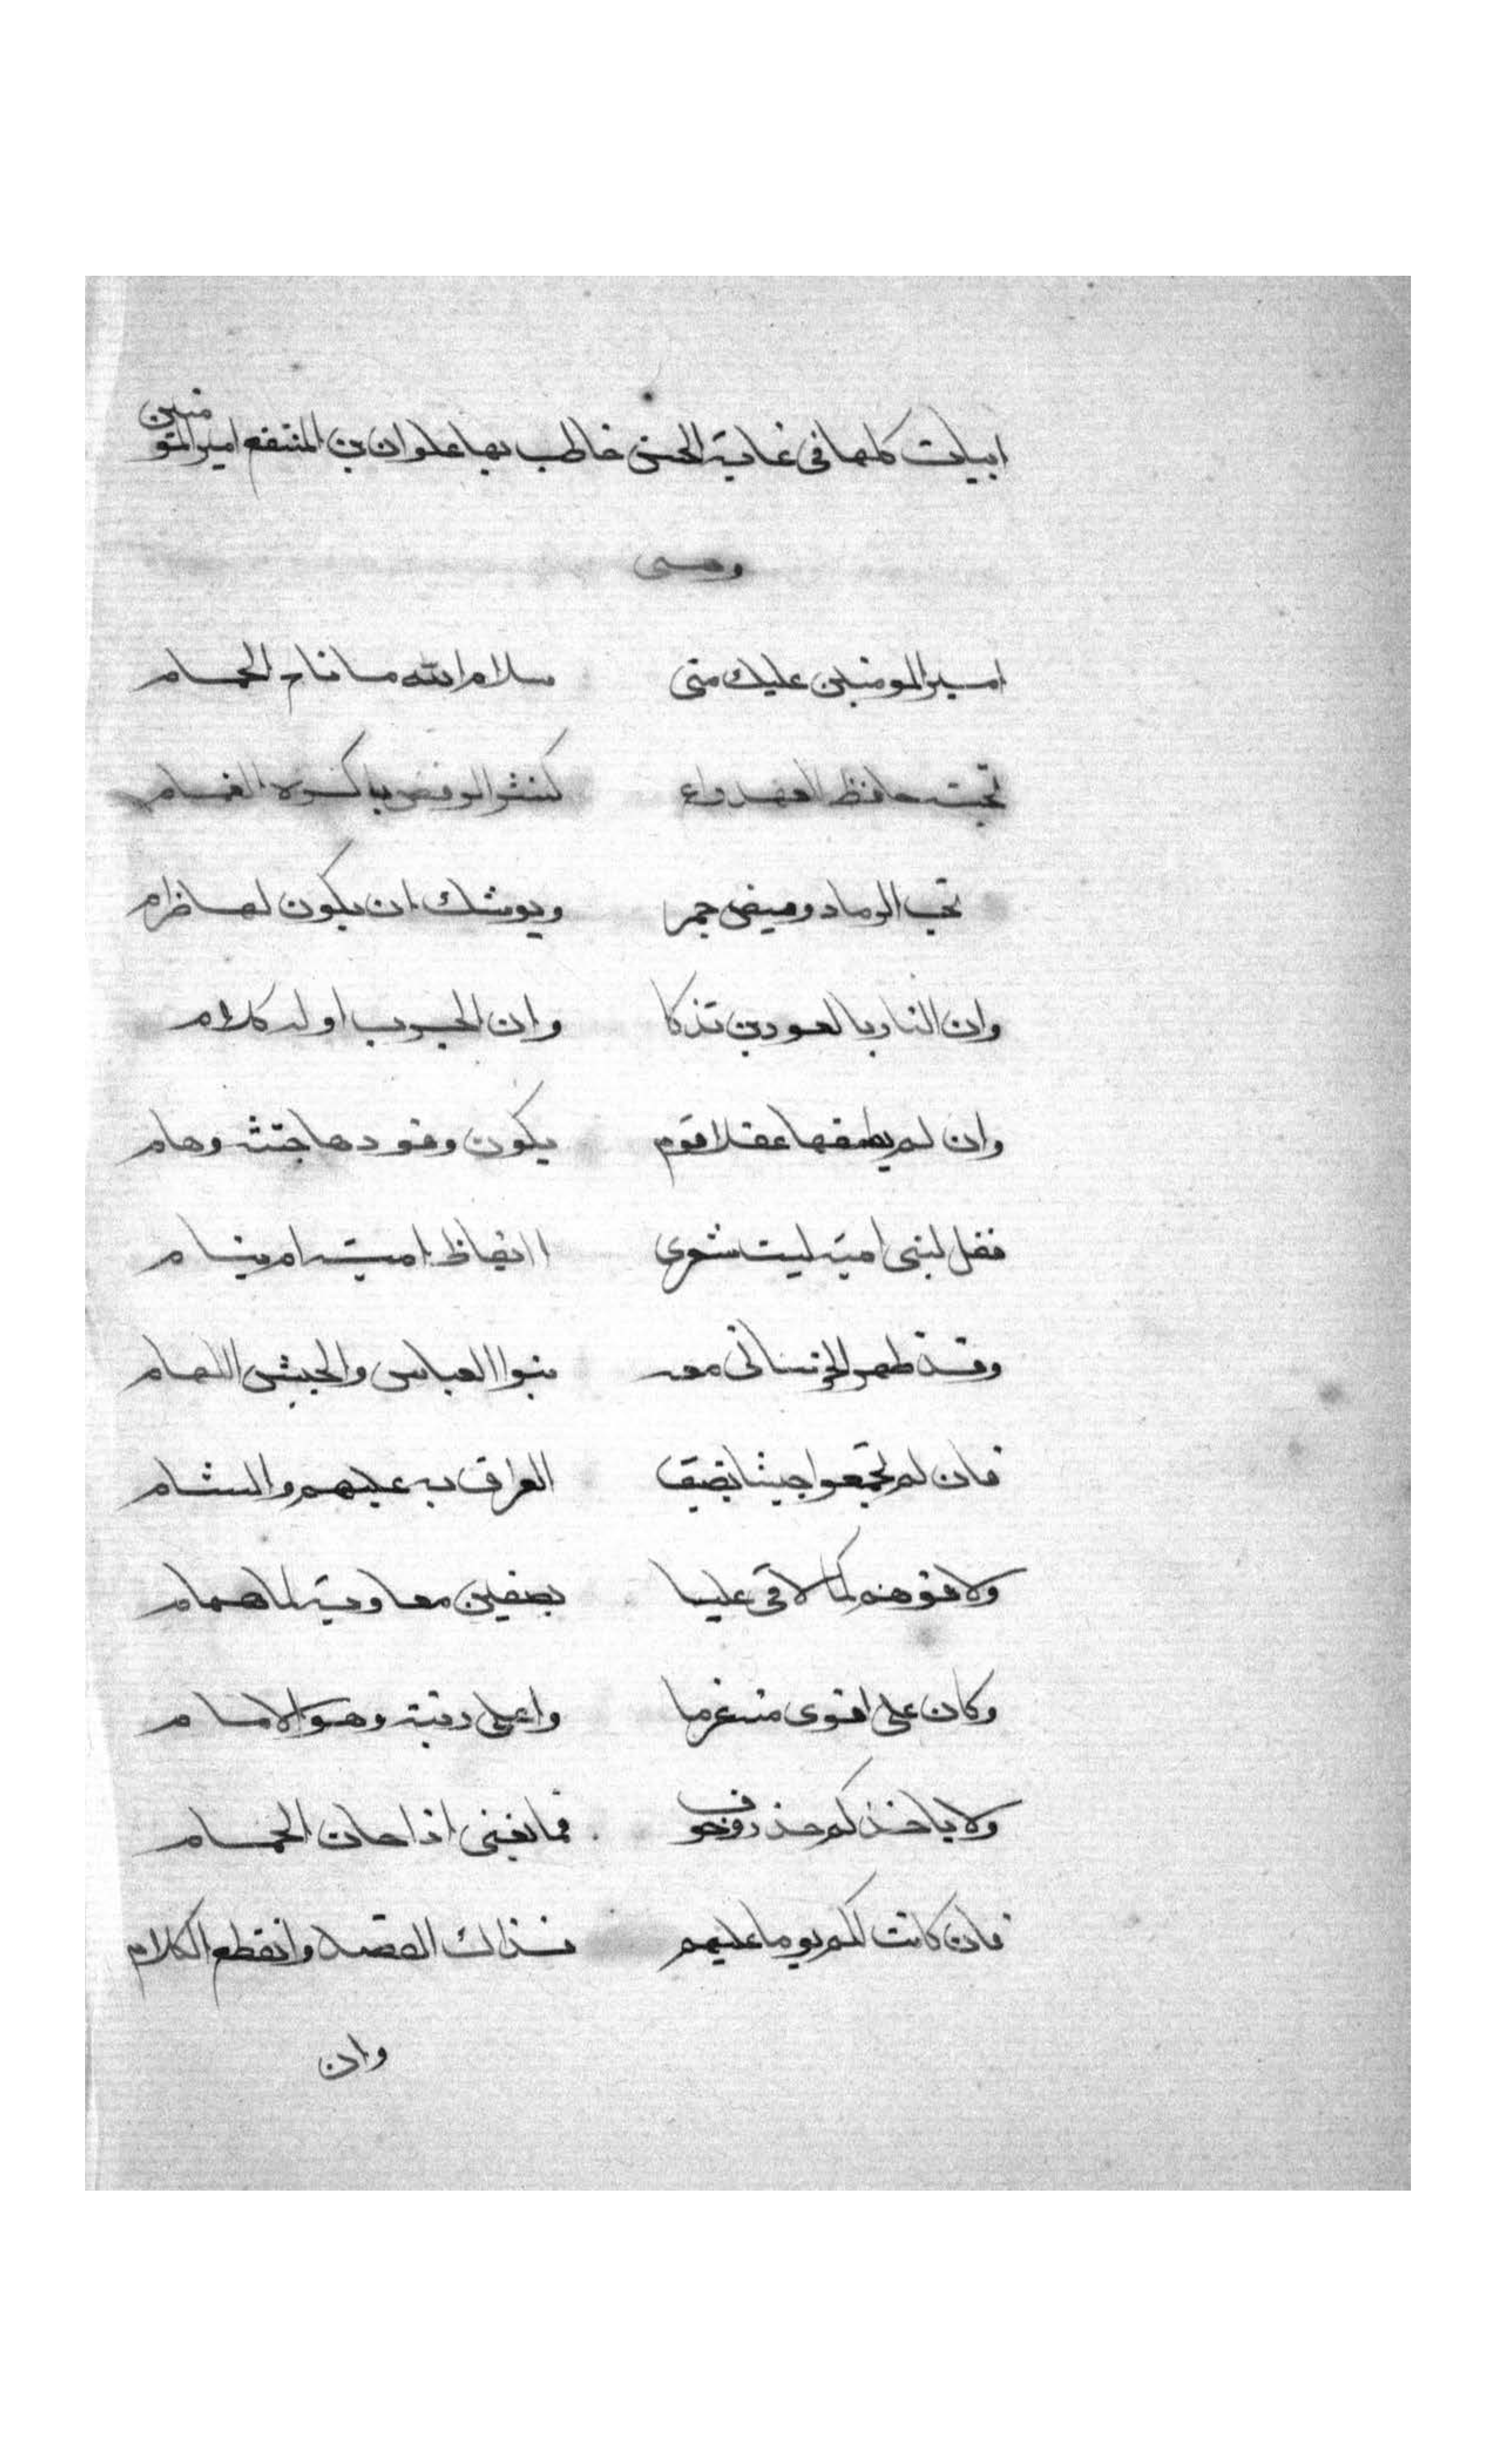 ابيات كلها فى غاية الحسن خاطب بها علوان بن المقنع امير المؤمنين
وهى
امير المومنين عليك منى سلام الله ما ناح الحمام
تحية حافظ العهد واع كنشر الروض باكره الغمام
تحت الرماد وميض جمر ويوشك ان يكون لها ظرام
وان النار بالعودين تذكا وان الحرب اوله كلام
وان لم يطفها عقلا قوم يكون وقودها جثث وهام
فقل لبنى امية ليت شعرى اايقاظ امية ام نيام
وقد ظهر الخرسانى معه بنوا العباس والجيش اللهام
فان لم تجمعوا جيشا يضيق العراق به عليهم والشام
ولاقوهم كما لاقى عليا بصفين معاوية الهمام
وكان على اقوى منه عزما واعلى رتبة وهو الامام
ولا ياخذكم حذر وخوف فما يغنى اذا حان الحمام
فان كانت لكم يوما عليهم فذاك القصد وانقطع الكلام
وان